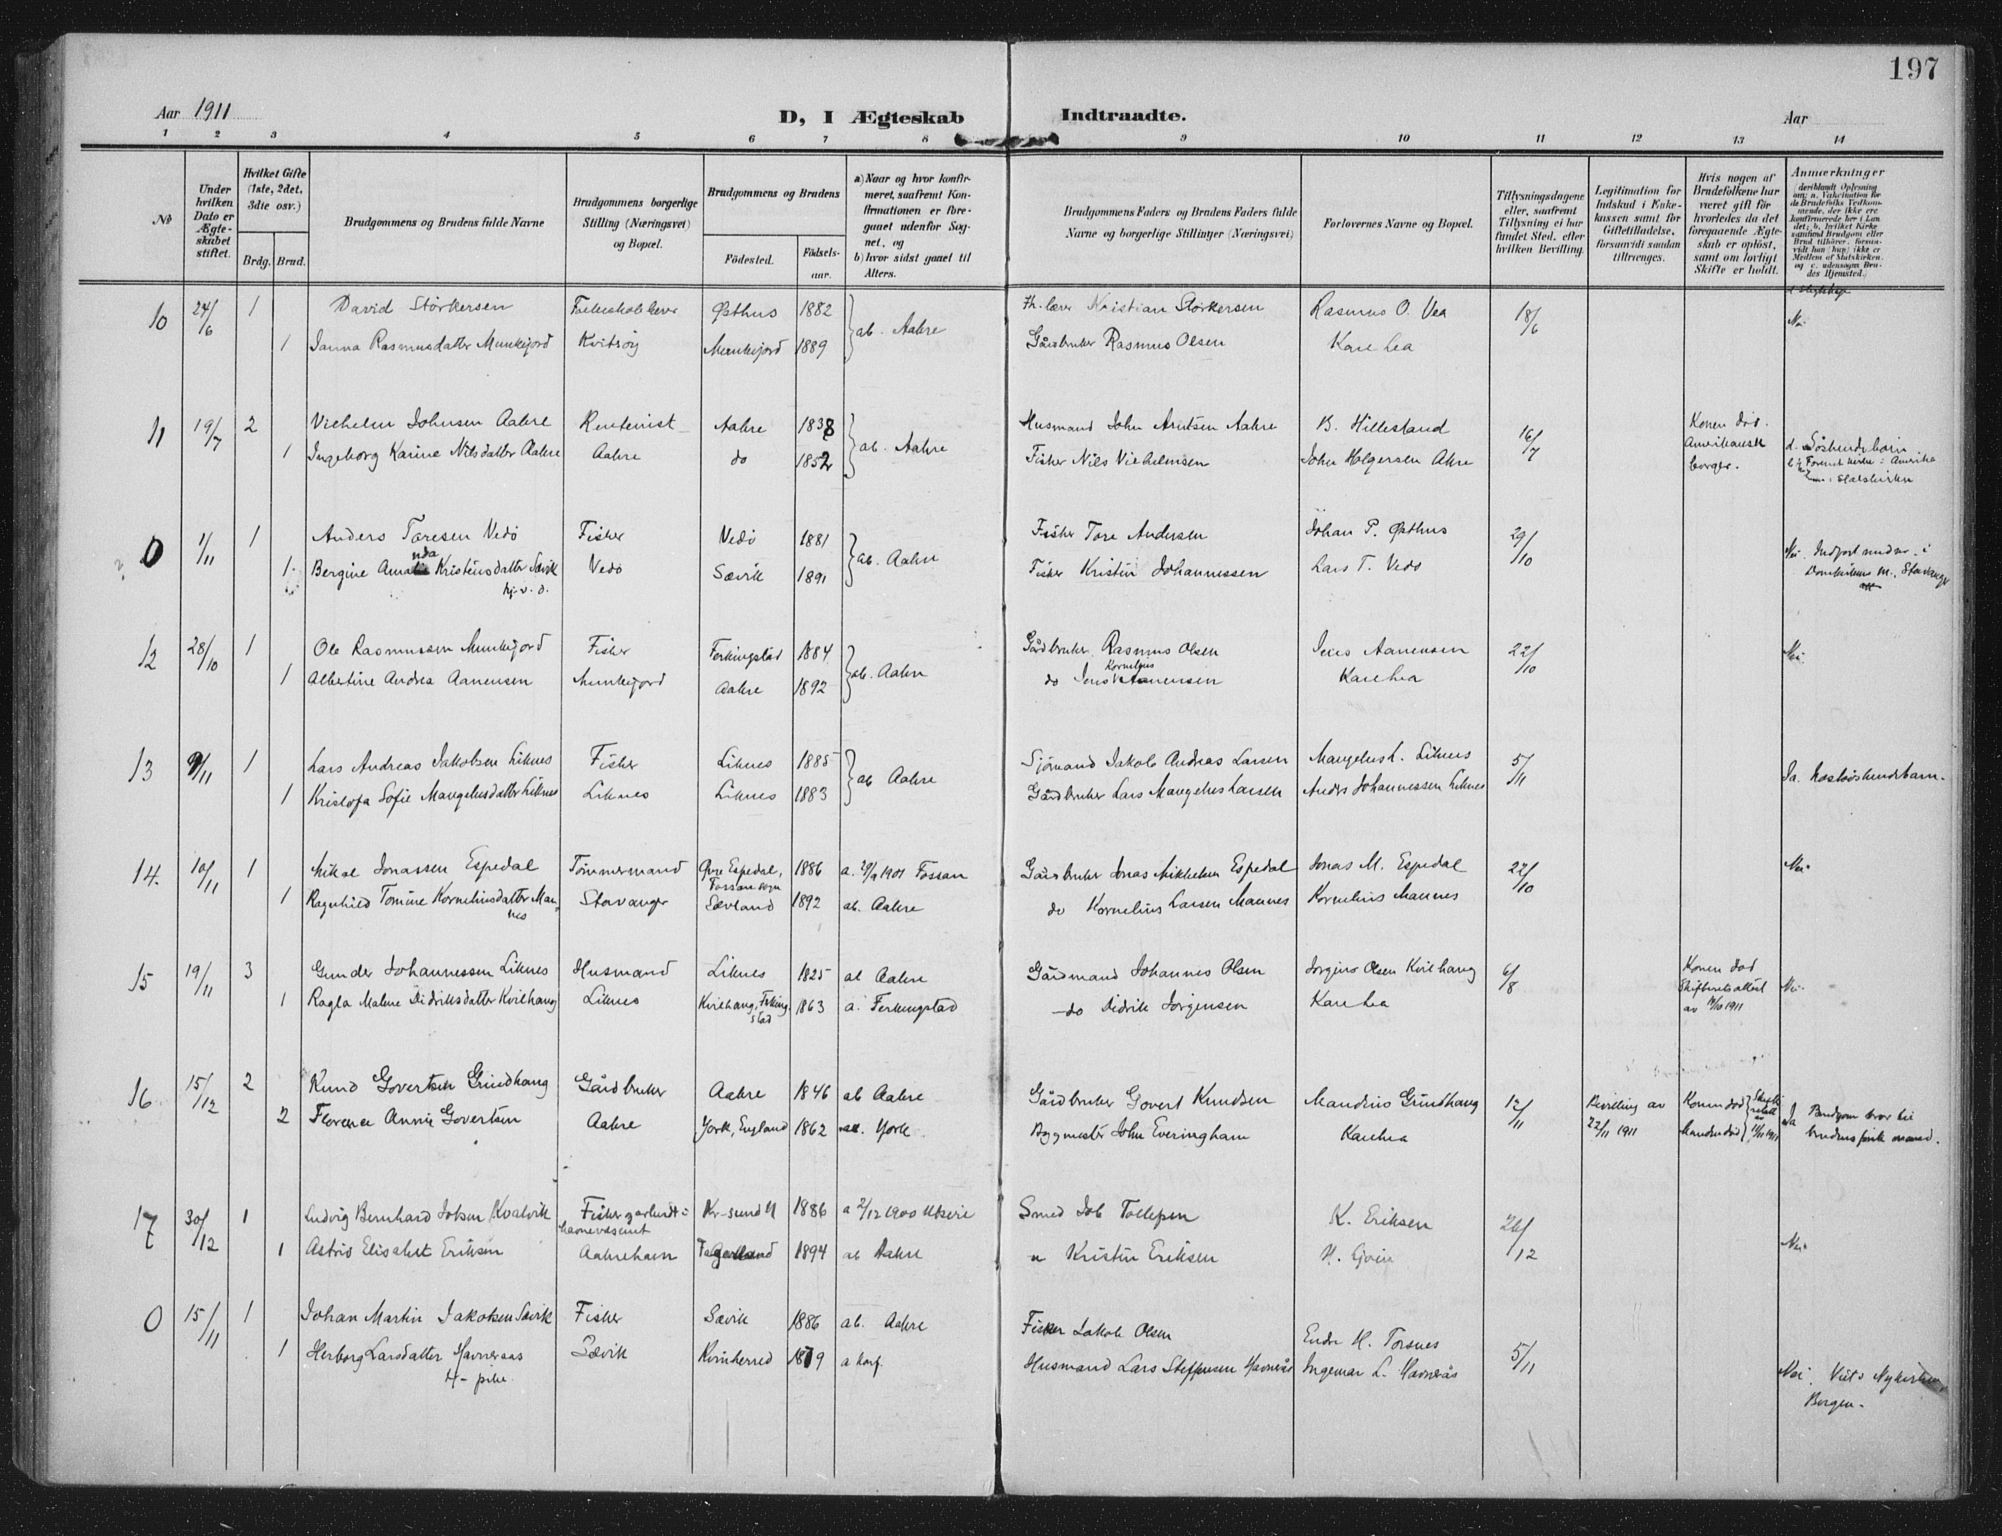 197
Aar 1911
D, I Ægteskab Indtraadte.
Aar
1 2 3 4 5 6 7 8 9 10 11 12 13 14
№
Under hvilken Dato er Ægteskabet stiftet.
Hvilket Gifte (1ste, 2det, 3die osv.)
Brdg. Brud.
Brudgommens og Brudens fulde Navne
Brudgommens borgerlige Stilling (Næringsvei) og Bopæl.
Brudgommens og Brudens
Fødested. Fødselsaar.
a) Naar og hvor konfirmeret, saafremt Konfirmationen er foregaaet udenfor Sognet, og
b) hvor sidst gaaet til Alters.
Brudgommens Faders og Brudens Faders fulde Navne og borgerlige Stillinger (Næringsvei)
Forlovernes Navne og Bopæl.
Tillysningsdagene eller, saafremt Tillysning ei har fundet Sted, efter hvilken Bevilling.
Legitimation for Indskud i Enkekassen samt for Giftetilladelse, forsaavidt saadan tiltrænges.
Hvis nogen af Brudefolkene har været gift før hvorledes da det foregaaende Ægteskab er opløst, samt om lovligt Skifte er holdt.
Anmærkninger
10 24/6 1 David Störkersen Folkeskolelærer Østhus 1882 ab. Aakre Kristian Störkersen Rasmus O. Vea 18/6 Nei
1 Janna Rasmusdatter Munkejord Kvitsöy Munkejord 1889 Gårdbruker Rasmus Olsen Karehea
11 19/7 2 Vilhelm Johnsen Aakre Rentenist Aakre 1838 ab. Aakre Husmand John Arntsen Aakre B. Hillesland 16/7 Konen död. Amerikansk borger. d. Söskendebörn
1 Ingeborg Karine Nilsdatter Aakre Aakre do 1852 Fisker Nils Vilhelmsen John Holgersen Akre
0 1/11 1 Anders Toresen Vedö Fisker Vedö 1881 ab. Aakre Fisker Tore Andersen Johan P. Østhus 29/10 Nei. Indfört under i Domkirkens m. Stavanger
1 Bergine Amanda Kristensdatter Sævik Vedö Sævik 1891 Fisker Kristen Johannessen Lars T. Vedö
hj. v. d.
12 28/10 1 Ole Rasmussen Munkejord Fisker Ferkingstad 1884 ab. Aakre Gårdbruker Rasmus Olsen Jens Aanensen 22/10 Nei
1 Albertine Andrea Aanensen Munkejord Aakre 1892 do Jens Kornelius Aanensen Karehea
13 9/11 1 Lars Andreas Jakobsen Liknes Fisker Liknes 1885 ab Aakre Sjömand Jakob Andreas Larsen Mangelus L. Liknes 5/11 Ja. Næstsöskendebarn.
1 Kristofa Sofie Mangelusdatter Liknes Liknes Liknes 1883 Gårdbruker Lars Mangelus Larsen Anders Johannessen Liknes
14. 10/11 1 Mikal Jonassen Espedal Tömmermand Øvre Espedal, Fossan sogn 1886 a. 29/9 1901 Fossan Gårdbruker Jonas Mikkelsen Espedal Jonas M. Espedal 22/10 Nei
1 Ragnhild Tomine Korneliusdatter Mannes Stavanger Sævland 1892 ab. Aakre do Kornelius Larsen Mannes Kornelius Mannes
15 19/11 3 Gunder Johannessen Liknes Husmand Liknes 1825 ab Aakre Gårdmand Johannes Olsen Jörgine Olsen Kvilhaug 6/8 Konen död Skifteretsattest av 14/10 1911 Nei
1 Ragla Malene Didriksdatter Kvilhaug Liknes Kvilhaug, Ferkingstad 1863 a. Ferkingstad do Didrik Jörgensen Karehea
16 15/12 2 Knud Govertsen Grindhaug Gårdbruker Aakre 1846 ab Aakre Gårdbruker Govert Knudsen Mandius Grindhaug 12/11 Bevilling av 22/11 1911 Konen död Ja Brudgom bror til brudens förste mand.
2 Florence Annie Govertsen Aakre York, England 1862 York Bygmester John Everingham Karehea Manden död 11/11 1911
17 30/12 1 Ludvig Bernhard Jobsen Kvalvik Fisker og arbeider i havnevæsenet Kr-sund N 1886 a 2/12 1900 Utsire Smed Job Tollefsen K. Eriksen 26/12 Nei
1 Astrid Elisabet Eriksen Aakrehavn Fagerland 1894 ab Aakre " Kristen Eriksen
0 15/11 1 Johan Martin Jakobsen Sævik Fisker Sævik 1886 ab. Aakre Fisker Jakob Olsen Endre H. Torsnes 5/11 Nei. Viet i Nykirken Bergen.
1 Herborg Larsdatter Havneraas Sævik Kvinherred 1879 a Husmand Lars Steffensen Havnerås Ingemar L. Havnerås